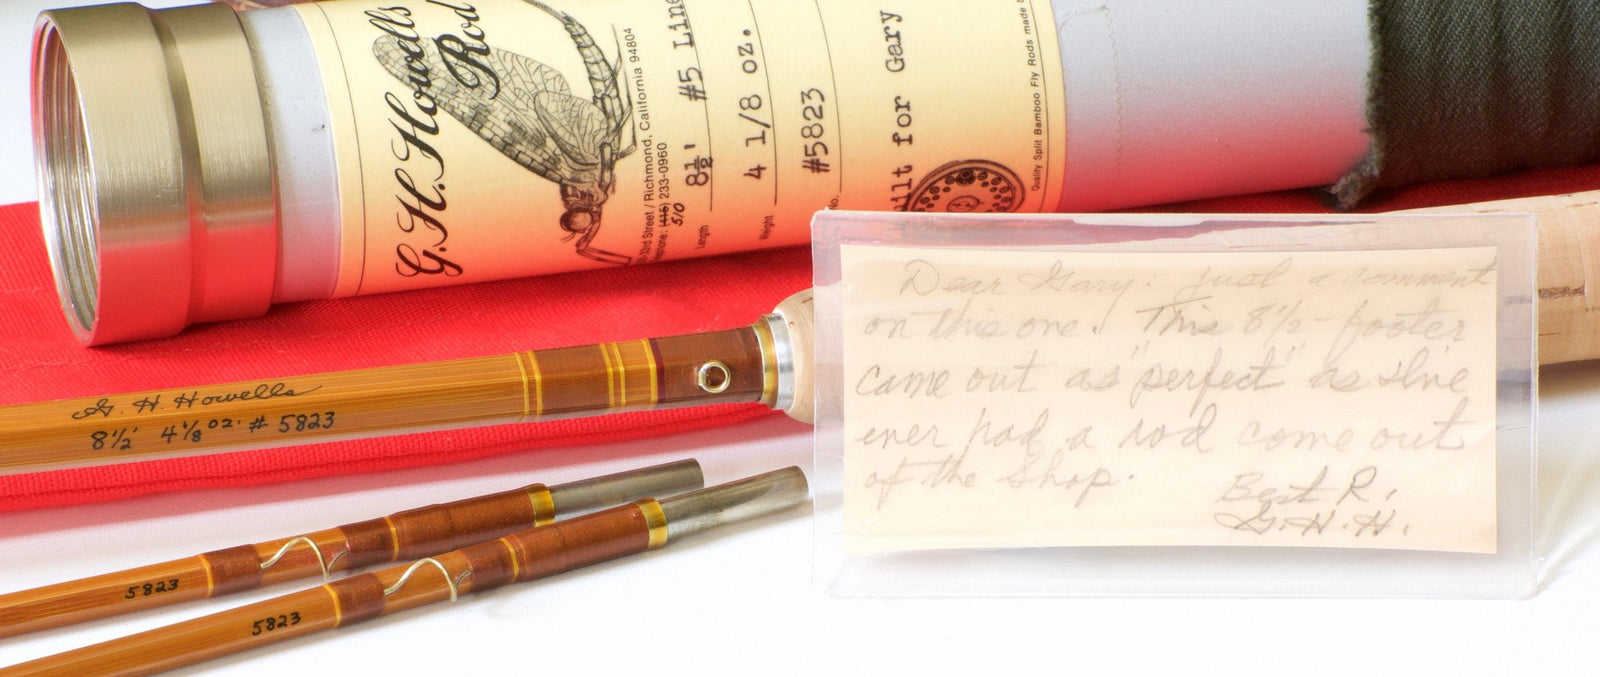 G.H. Howells
Rod
53rd Street / Richmond, California 94804
(415) 233-0960
510
Length 8½' #5 Line
Weight 4 1/8 oz.
No. #5823
for Gary
Quality Split Bamboo Fly Rods made
G. H. Howells
8½' 4⅛ oz. # 5823
5823
5823
Dear Gary: Just a comment
on this one. This 8½-footer
came out as "perfect" as I've
ever had a rod come out
of the shop.
Best R,
G.H.H.